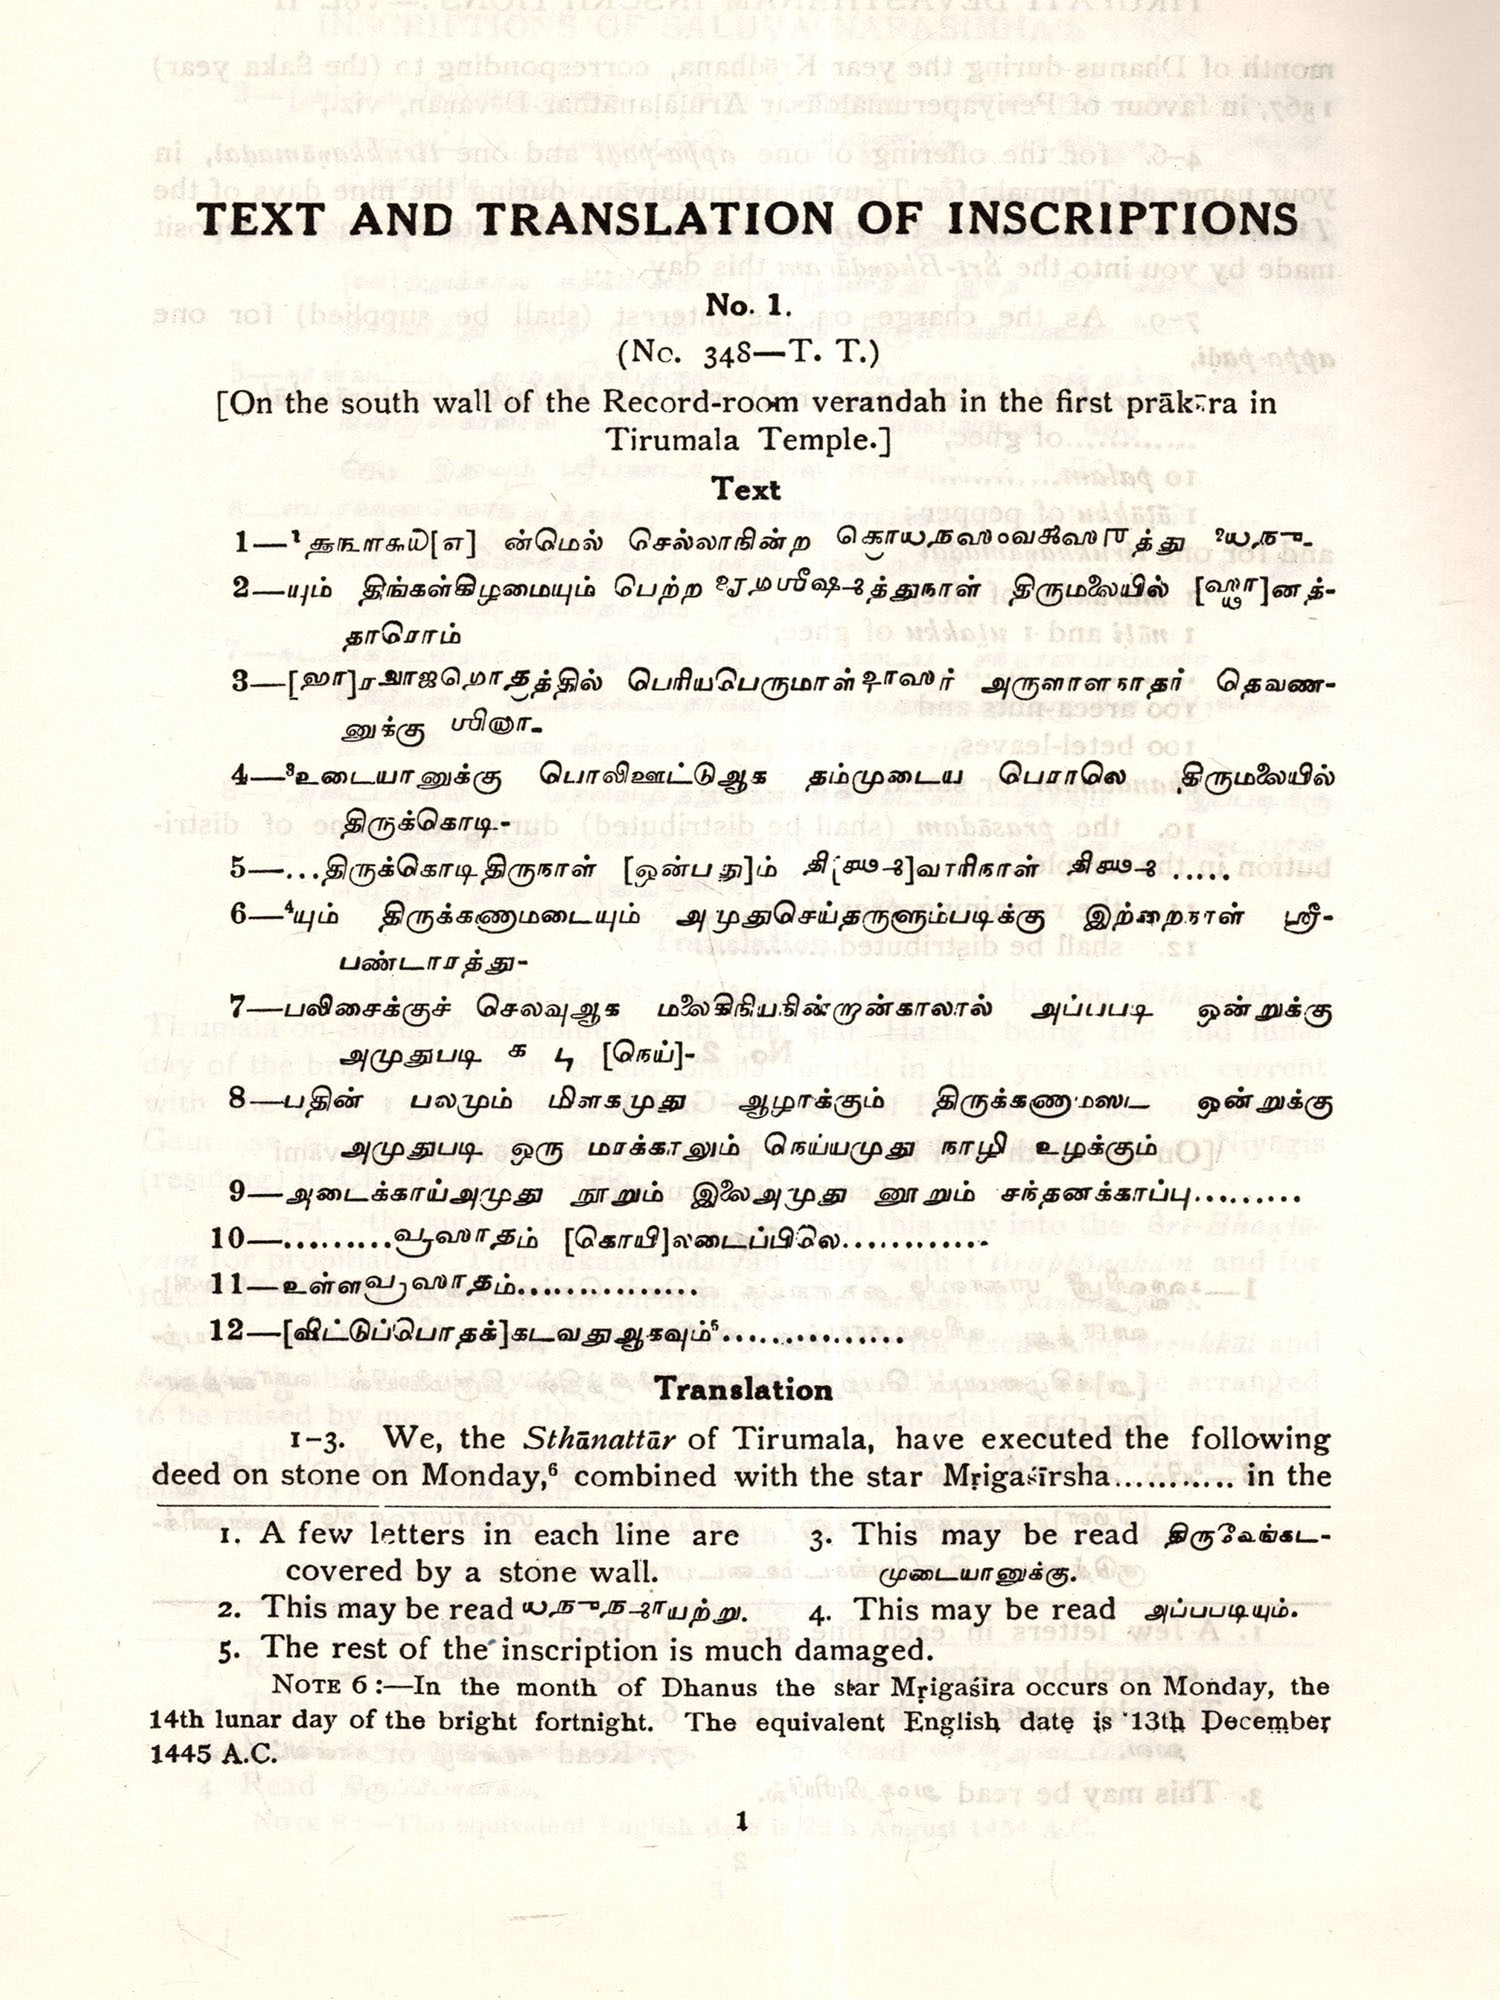 TEXT AND TRANSLATION OF INSCRIPTIONS
No. 1.
(No. 348—T. T.)
[On the south wall of the Record-room verandah in the first prākāra in
Tirumala Temple.]
Text
1— ன்மெல் செல்லாநின்ற
2—யும் திங்கள்கிழமையும் பெற்ற திருமலையில்
தாரொம்
3— பெரியபெருமாள் அருளாளநாதர் தெவண-
னுக்கு
4—³உடையானுக்கு பொலிஊட்டுஆக தம்முடைய பெராலெ திருமலையில்
திருக்கொடி-
5—...திருக்கொடிதிருநாள் [ஒன்பது]ம் .....
6—⁴யும் திருக்கணுமடையும் அமுதுசெய்தருளும்படிக்கு இற்றைநாள் ஸ்ரீ-
பண்டாரத்து-
7—பலிசைக்குச் செலவுஆக அப்பபடி ஒன்றுக்கு
அமுதுபடி [நெய்]-
8—பதின் பலமும் மிளகமுது ஆழாக்கும் திருக்கணுமடை ஒன்றுக்கு
அமுதுபடி ஒரு மரக்காலும் நெய்யமுது நாழி உழக்கும்
9—அடைக்காய்அமுது நூறும் இலைஅமுது னூறும் சந்தனக்காப்பு.........
10—.........ப்ரஸாதம் [கொயி]லடைப்பிலெ.............
11—உள்ளப்ரஸாதம்...............
12—[விட்டுப்பொதக்]கடவதுஆகவும்⁵...............
Translation
1-3. We, the Sthānattār of Tirumala, have executed the following
deed on stone on Monday,⁶ combined with the star Mṛigaśīrsha........... in the
1. A few letters in each line are
covered by a stone wall.
2. This may be read
3. This may be read திருவேங்கட-
முடையானுக்கு.
4. This may be read அப்பபடியும்.
5. The rest of the inscription is much damaged.
NOTE 6 :—In the month of Dhanus the star Mṛigaśira occurs on Monday, the
14th lunar day of the bright fortnight. The equivalent English date is 13th December
1445 A.C.
1